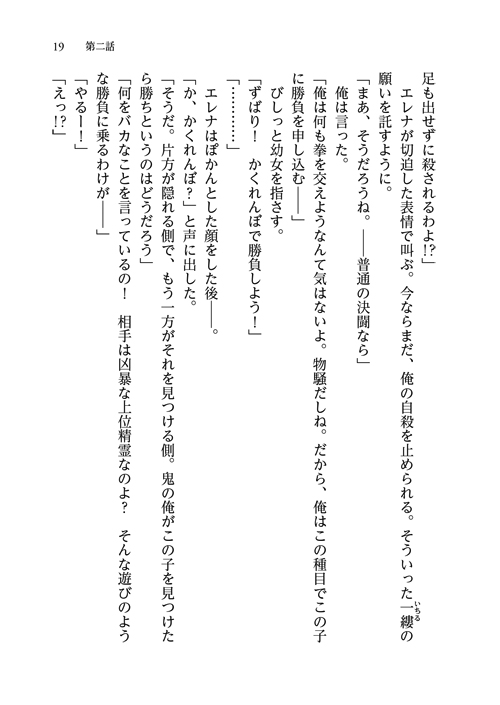 19　第二話
足も出せずに殺されるわよ!?」
　エレナが切迫した表情で叫ぶ。今ならまだ、俺の自殺を止められる。そういった一縷いちるの
願いを託すように。
「まあ、そうだろうね。――普通の決闘なら」
　俺は言った。
「俺は何も拳を交えようなんて気はないよ。物騒だしね。だから、俺はこの種目でこの子
に勝負を申し込む――」
　びしっと幼女を指さす。
「ずばり！　かくれんぼで勝負しよう！」
「…………」
　エレナはぽかんとした顔をした後――。
「か、かくれんぼ？」と声に出した。
「そうだ。片方が隠れる側で、もう一方がそれを見つける側。鬼の俺がこの子を見つけた
ら勝ちというのはどうだろう」
「何をバカなことを言っているの！　相手は凶暴な上位精霊なのよ？　そんな遊びのよう
な勝負に乗るわけが――」
「やるー！」
「えっ!?」